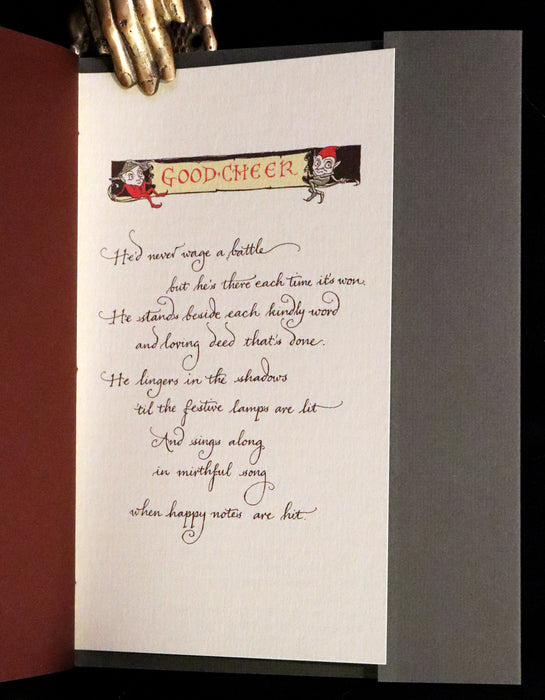 GOOD·CHEER
He'd never wage a battle
but he's there each time it's won.
He stands beside each kindly word
and loving deed that's done.
He lingers in the shadows
'til the festive lamps are lit
And sings along
in mirthful song
when happy notes are hit.